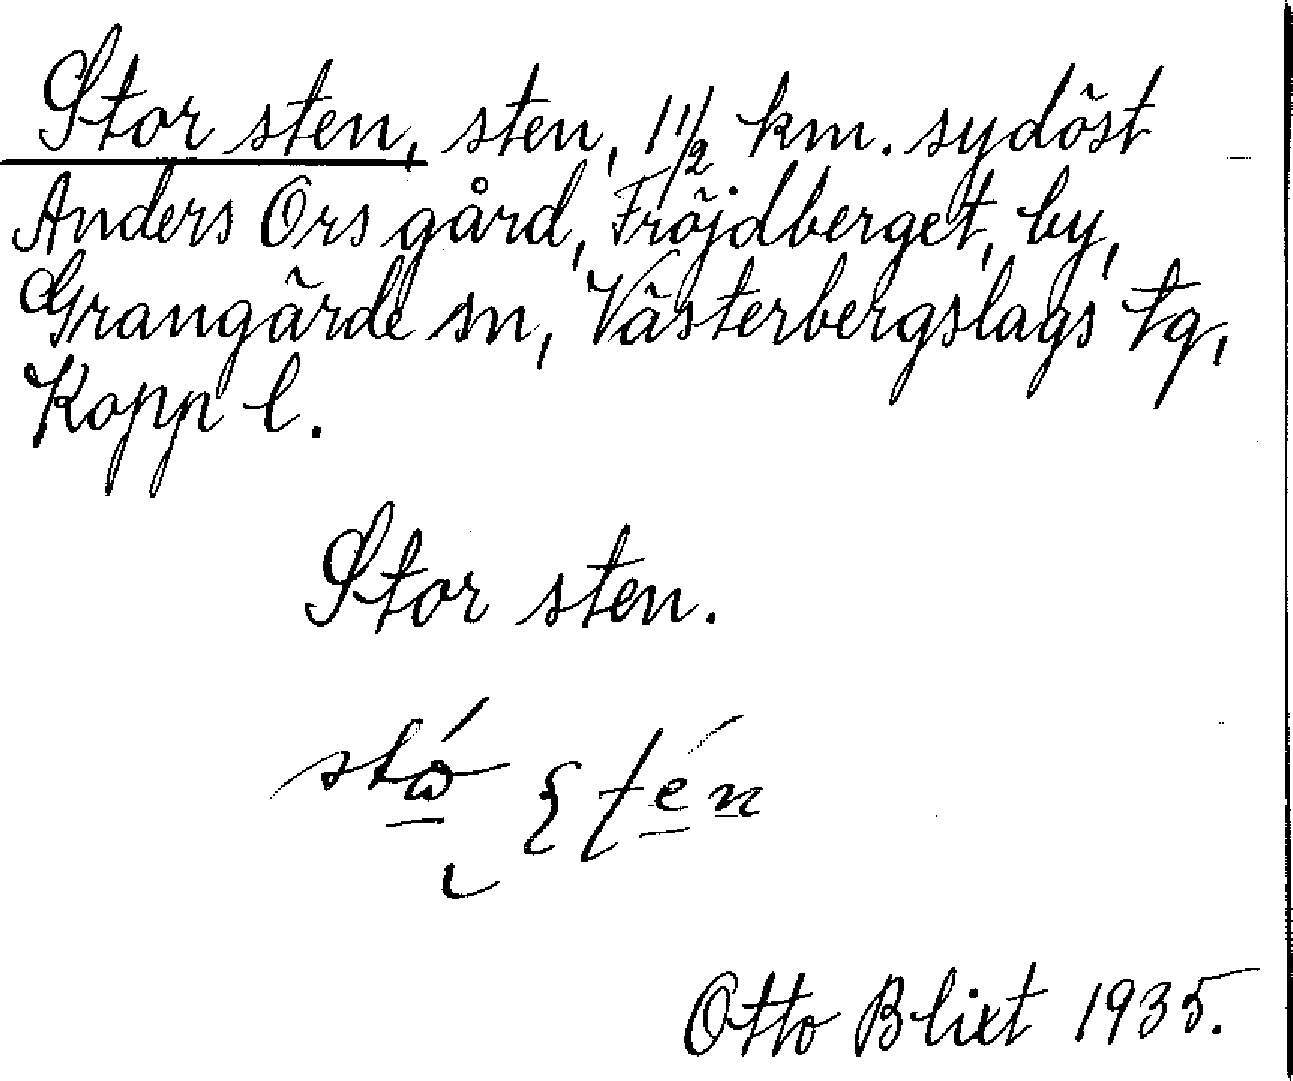 Stor sten, sten, 1 1/2 km. sydöst
Anders Ors gård, Fröjdberget, by,
Grangärde sn, Västerbergslags tg,
Kopp l.
Stor sten.
Otto Blixt 1935.